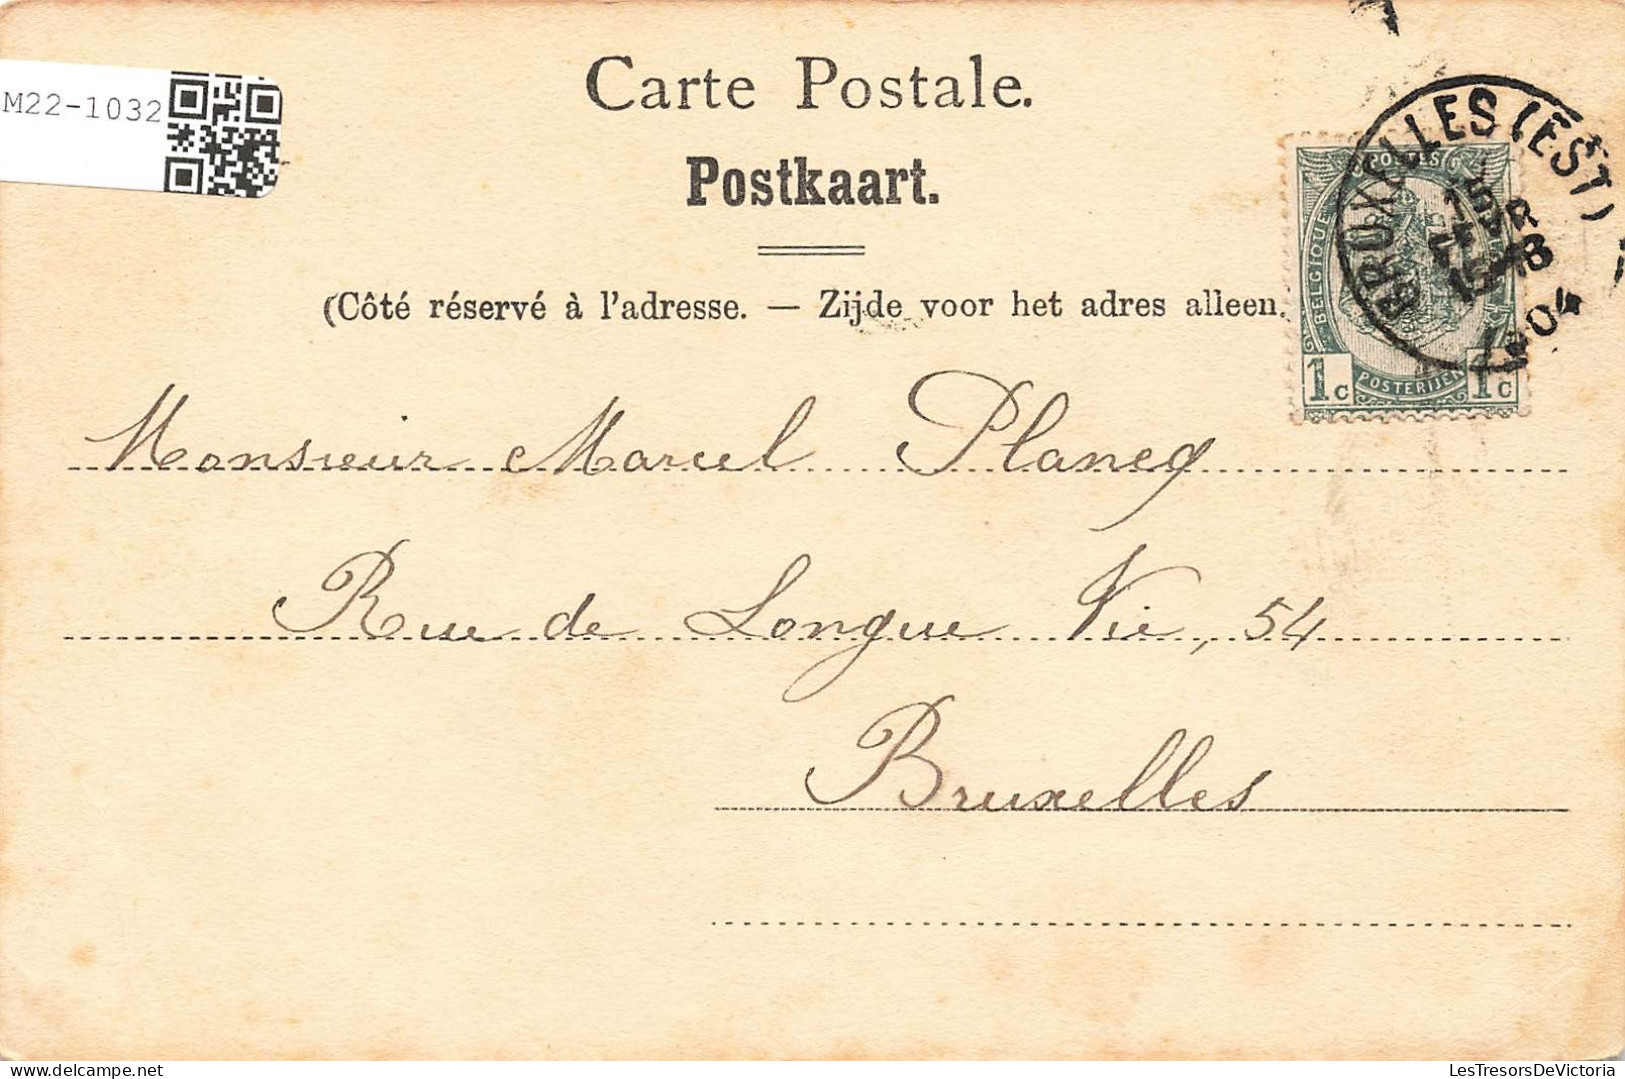 M22-1032
Carte Postale.
Postkaart.
(Côté réservé à l'adresse. — Zijde voor het adres alleen.
BRUXELLES (EST)
15
1904
POSTES
BELGIQUE
POSTERIJEN
1c 1c
Monsieur Marcel Plancq
Rue de Longue Vie, 54
Bruxelles
LesTresorsDeVictoria